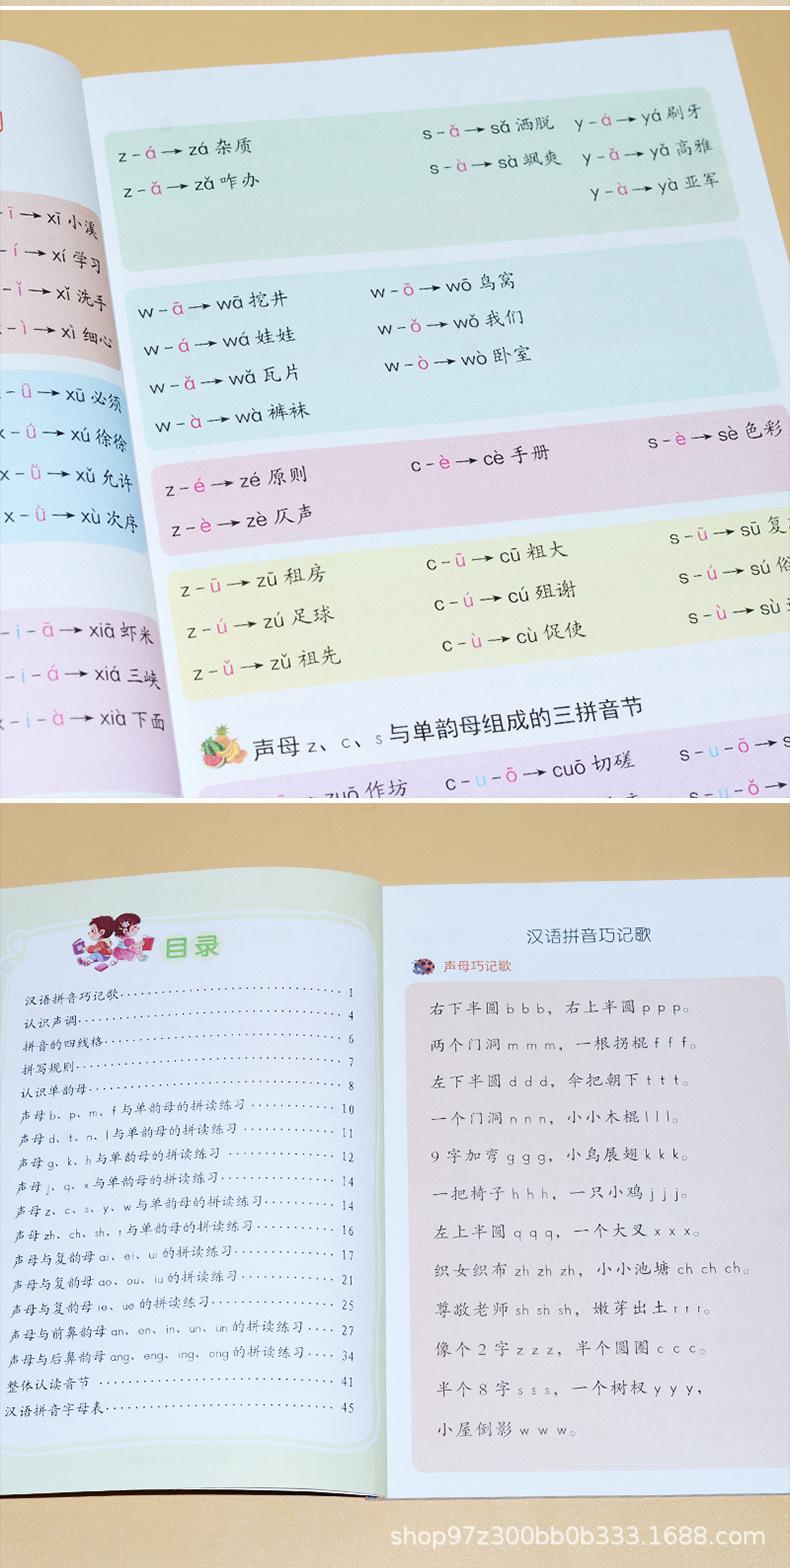 -ī→xī 小溪
-í→xí 学习
-ǐ→xǐ 洗手
-ì→xì 细心
-ū→xū 必须
x-ú→xú 徐徐
x-ǔ→xǔ 允许
x-ù→xù 次序
-i-ā→xiā 虾米
-i-á→xiá 三峡
x-i-à→xià 下面
z-á→zá 杂质
z-ǎ→zǎ 咋办
s-ǎ→sǎ 洒脱
s-à→sà 飒爽
y-á→yá 刷牙
y-ǎ→yǎ 高雅
y-à→yà 亚军
w-ā→wā 挖井
w-á→wá 娃娃
w-ǎ→wǎ 瓦片
w-à→wà 裤袜
w-ō→wō 鸟窝
w-ǒ→wǒ 我们
w-ò→wò 卧室
z-é→zé 原则
z-è→zè 仄声
c-è→cè 手册
s-è→sè 色彩
z-ū→zū 租房
z-ú→zú 足球
z-ǔ→zǔ 祖先
c-ū→cū 粗大
c-ú→cú 殂谢
c-ù→cù 促使
s-ū→sū 复
s-ú→sú 俗
s-ù→sù
声母 z、c、s 与单韵母组成的三拼音节
zuō 作坊
c-u-ō→cuō 切磋
s-u-ō→s
s-u-ǒ→
目录
汉语拼音巧记歌 1
认识声调 4
拼音的四线格 6
拼写规则 7
认识单韵母 8
声母 b、p、m、f 与单韵母的拼读练习 10
声母 d、t、n、l 与单韵母的拼读练习 11
声母 g、k、h 与单韵母的拼读练习 12
声母 j、q、x 与单韵母的拼读练习 14
声母 z、c、s、y、w 与单韵母的拼读练习 14
声母 zh、ch、sh、r 与单韵母的拼读练习 16
声母与复韵母 ai、ei、ui 的拼读练习 17
声母与复韵母 ao、ou、iu 的拼读练习 21
声母与复韵母 ie、üe 的拼读练习 25
声母与前鼻韵母 an、en、in、un、ün 的拼读练习 27
声母与后鼻韵母 ang、eng、ing、ong 的拼读练习 34
整体认读音节 41
汉语拼音字母表 45
汉语拼音巧记歌
声母巧记歌
右下半圆 b b b，右上半圆 p p p。
两个门洞 m m m，一根拐棍 f f f。
左下半圆 d d d，伞把朝下 t t t。
一个门洞 n n n，小小木棍 l l l。
9 字加弯 g g g，小鸟展翅 k k k。
一把椅子 h h h，一只小鸡 j j j。
左上半圆 q q q，一个大叉 x x x。
织女织布 zh zh zh，小小池塘 ch ch ch。
尊敬老师 sh sh sh，嫩芽出土 r r r。
像个 2 字 z z z，半个圆圈 c c c。
半个 8 字 s s s，一个树杈 y y y，
小屋倒影 w w w。
shop97z300bb0b333.1688.com